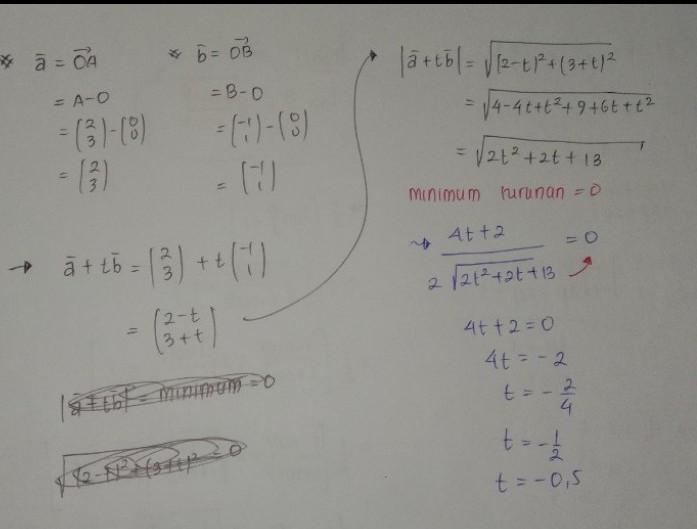 * a̅ = O͞A⃗
= A-O
= (2 3) - (0 0)
= (2 3)
* b̅ = O͞B⃗
= B-O
= (-1 1) - (0 0)
= (-1 1)
→ a̅ + tb̅ = (2 3) + t(-1 1)
= (2-t 3+t)
|a̅+tb̅| = minimum = 0
√(2-t)²+(3+t)² = 0
|a̅+tb̅| = √(2-t)²+(3+t)²
= √4-4t+t²+9+6t+t²
= √2t²+2t+13
minimum turunan = 0
→ 4t+2 / 2√2t²+2t+13 = 0
4t+2=0
4t = -2
t = -2/4
t = -1/2
t = -0,5